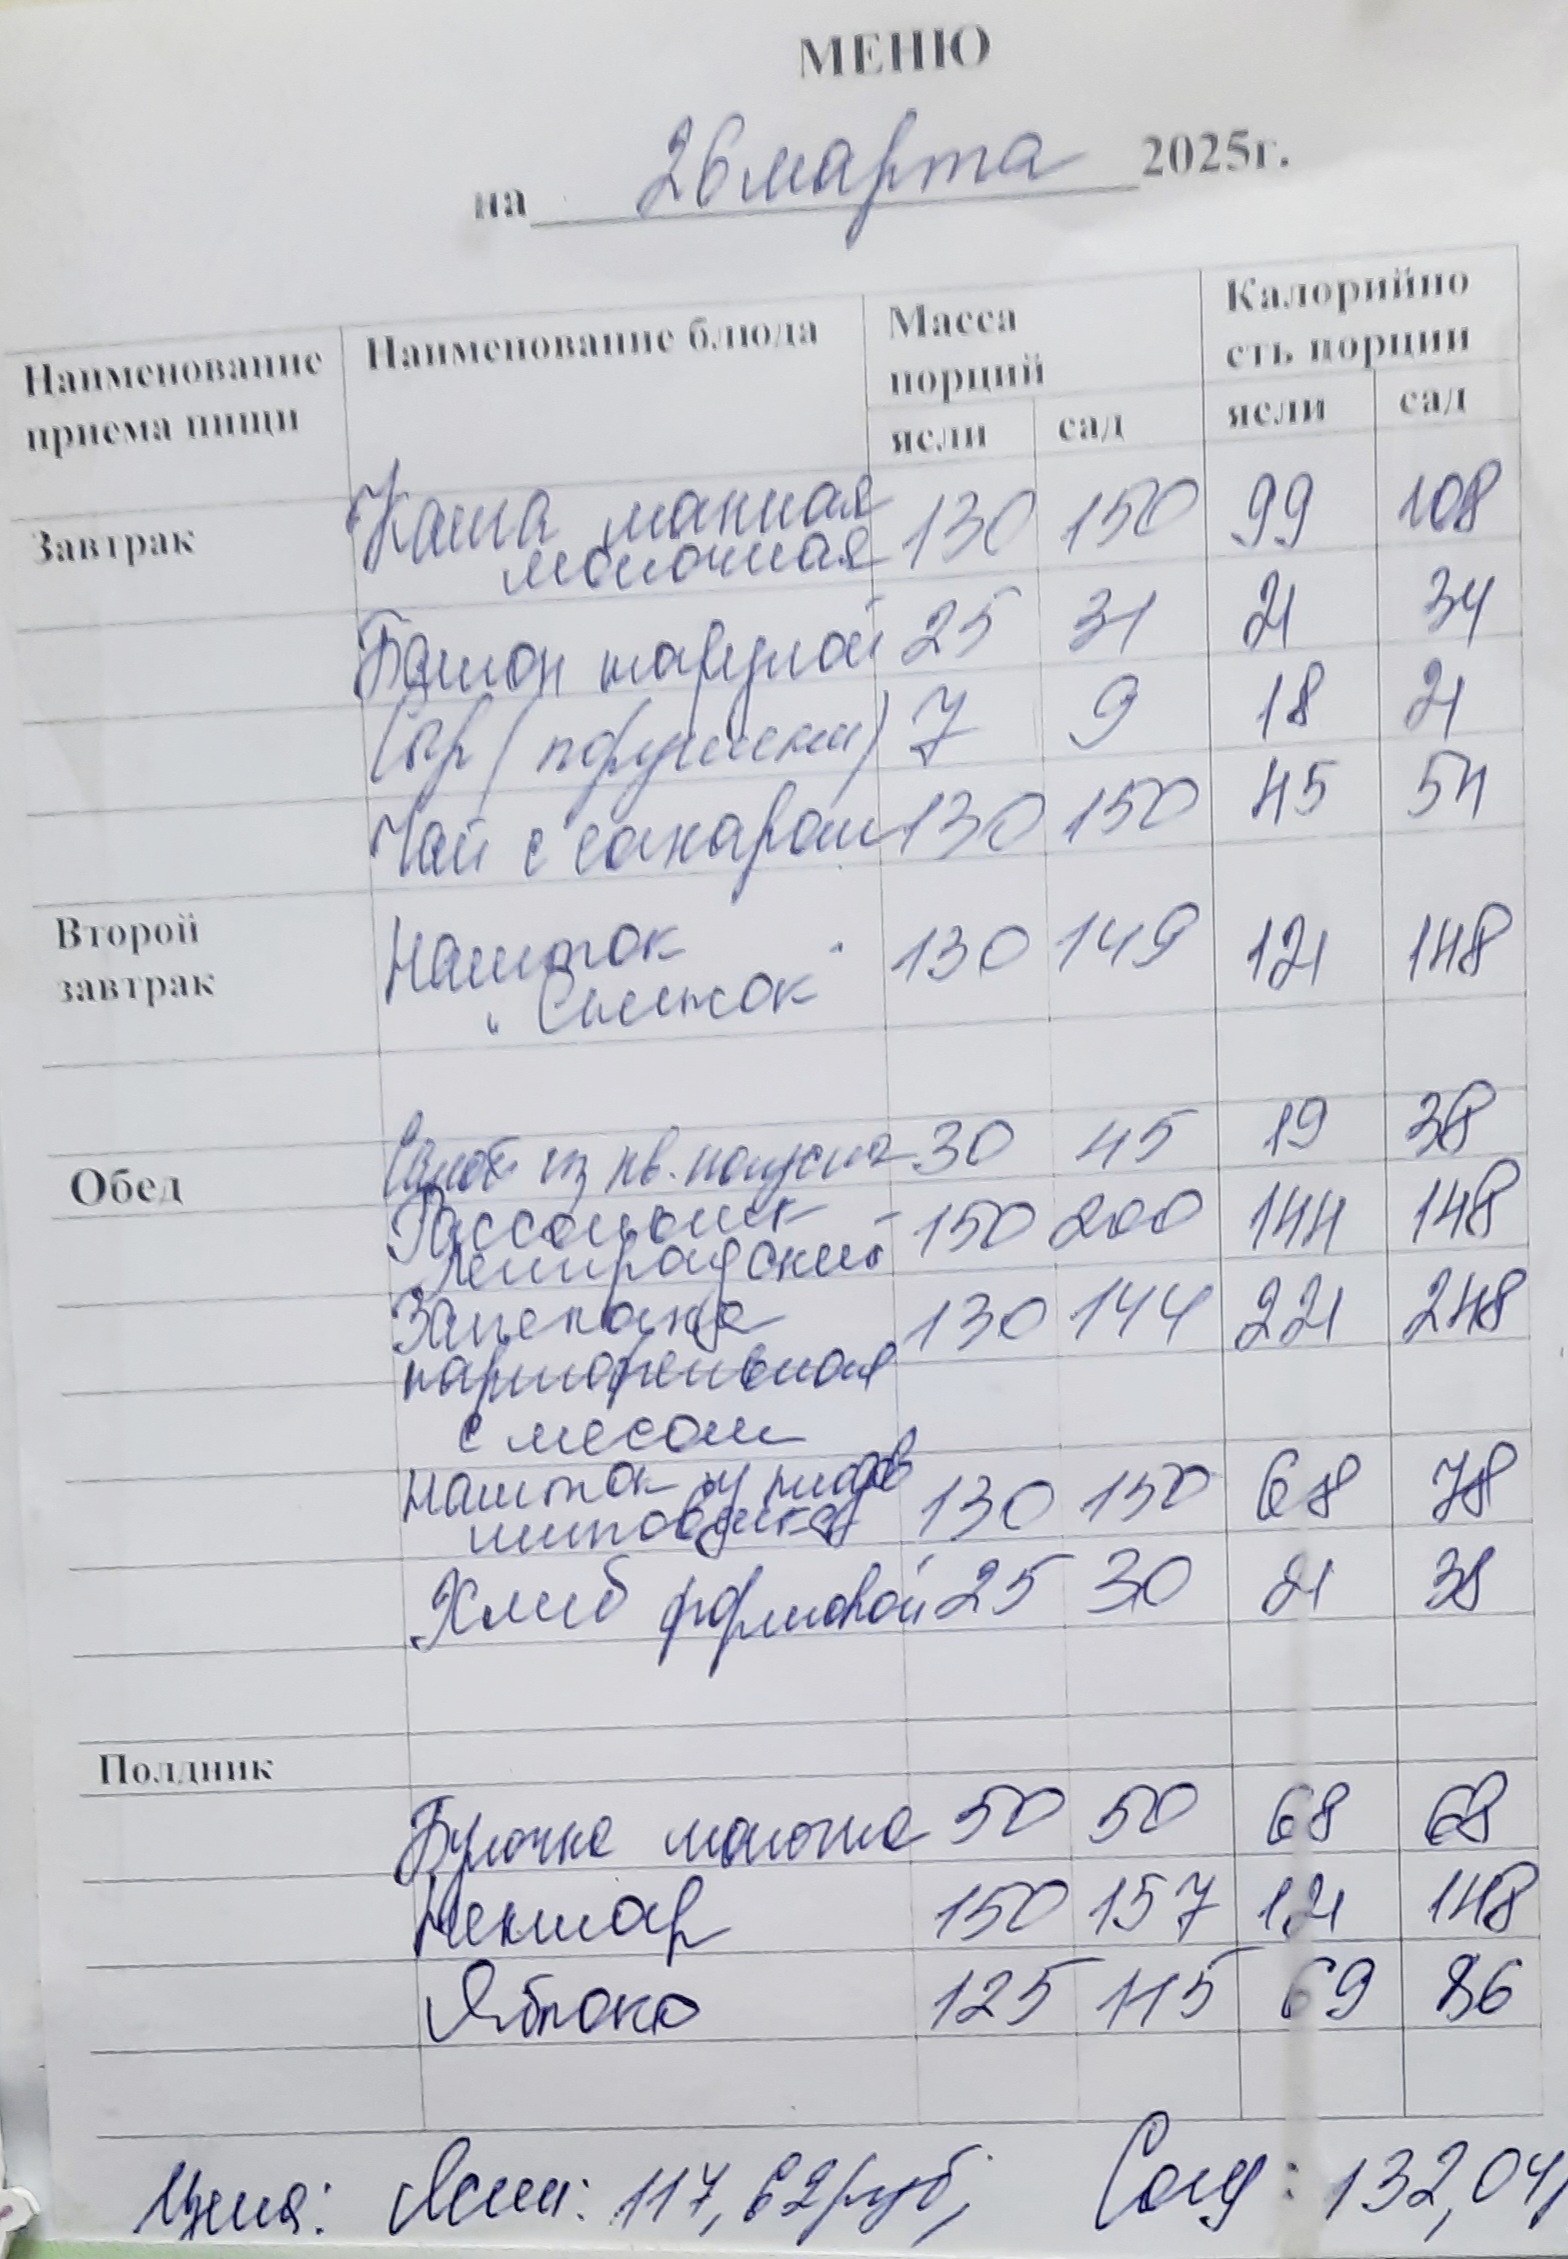 МЕНЮ
на 26 марта 2025г.
Наименование приема пищи Наименование блюда Масса порций Калорийно сть порции
ясли сад ясли сад
Завтрак Каша манная молочная 130 150 99 108
Батон нарезной 25 31 21 34
Сыр (порциями) 7 9 18 21
Чай с сахаром 130 150 45 54
Второй завтрак Напиток "Снежок" 130 149 121 148
Обед Салат из кв. капусты 30 45 19 38
Рассольник Ленинградский 150 200 144 148
Запеканка картофельная с мясом 130 144 221 248
Напиток из плодов шиповника 130 150 68 78
Хлеб формовой 25 30 21 38
Полдник
Булочка молочная 50 50 68 68
Нектар 150 157 121 148
Яблоко 125 115 69 86
Цена: Ясли: 117,62 руб, Сад: 132,04